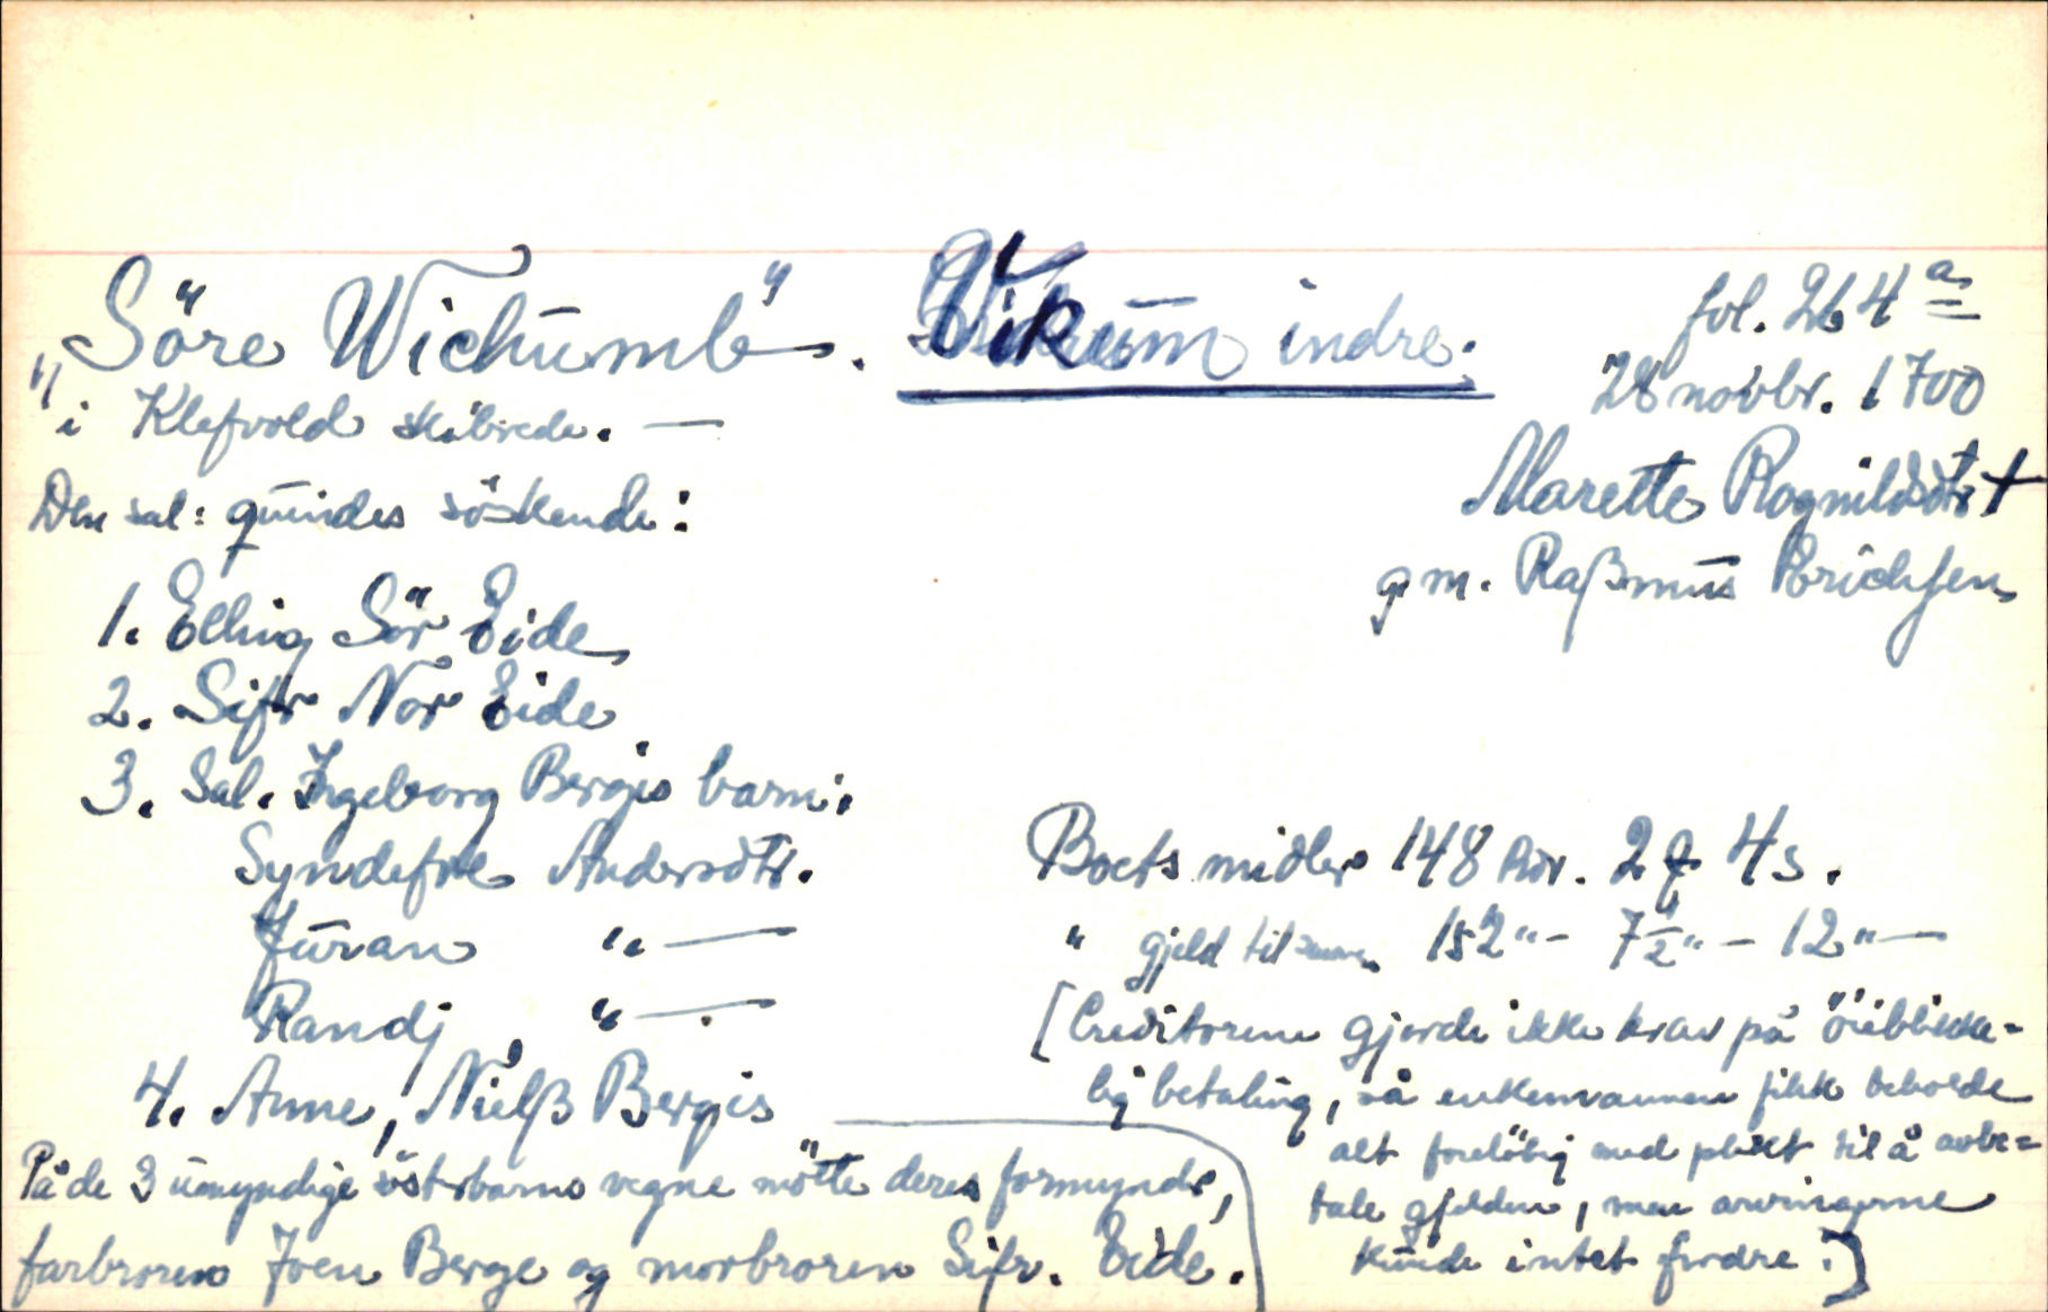 "Söre Wichumb". Vikum indre.
fol. 264 a
28 novbr. 1700
"i Klefvold skibrede. —
Marette Rognildsdtr +
gm. Raßmus Erichsen
Den sal: quindes söskende:
1. Elling Sör Eide
2. Sifr Nor Eide
3. Sal. Ingeborg Berges barn:
Syndefre Andersdtr.
Juran " —
Randj " —
4. Anne, Nielß Bergis
På de 3 umyndige söstrbarns vegne mötte deres formyndr,
farbroren Joen Berge og morbroren Sifr. Eide.
Boets midler 148 rdr. 2 4 s.
" gjeld til 152 " - 7½ " - 12 " —
[Creditorene gjorde ikke krav på öieblikke-
lig betaling, så enkemannen fikk beholde
alt forelöbig med plikt til å avbe=
tale gjelden, men arvingerne
kunde intet fordre.]